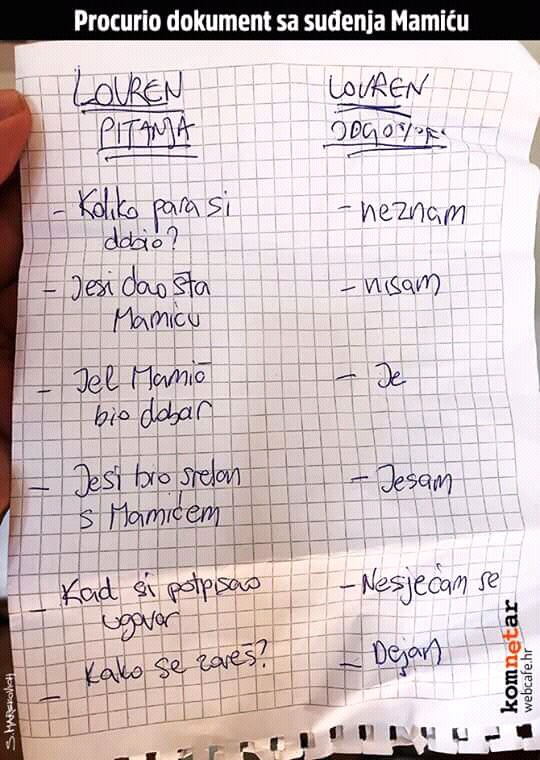 Procurio dokument sa suđenja Mamiću
LOVREN LOVREN
PITANJA ODGOVORI
- Koliko para si - neznam
dobio?
- Jesi dao šta - nisam
Mamiću
- Jel Mamić - Je
bio dobar
- Jesi bio sretan - Jesam
s Mamićem
- Kad si potpisao - Nesjećam se
ugovar
- Kako se zoveš? - Dejan
komnetar
webcafe.hr